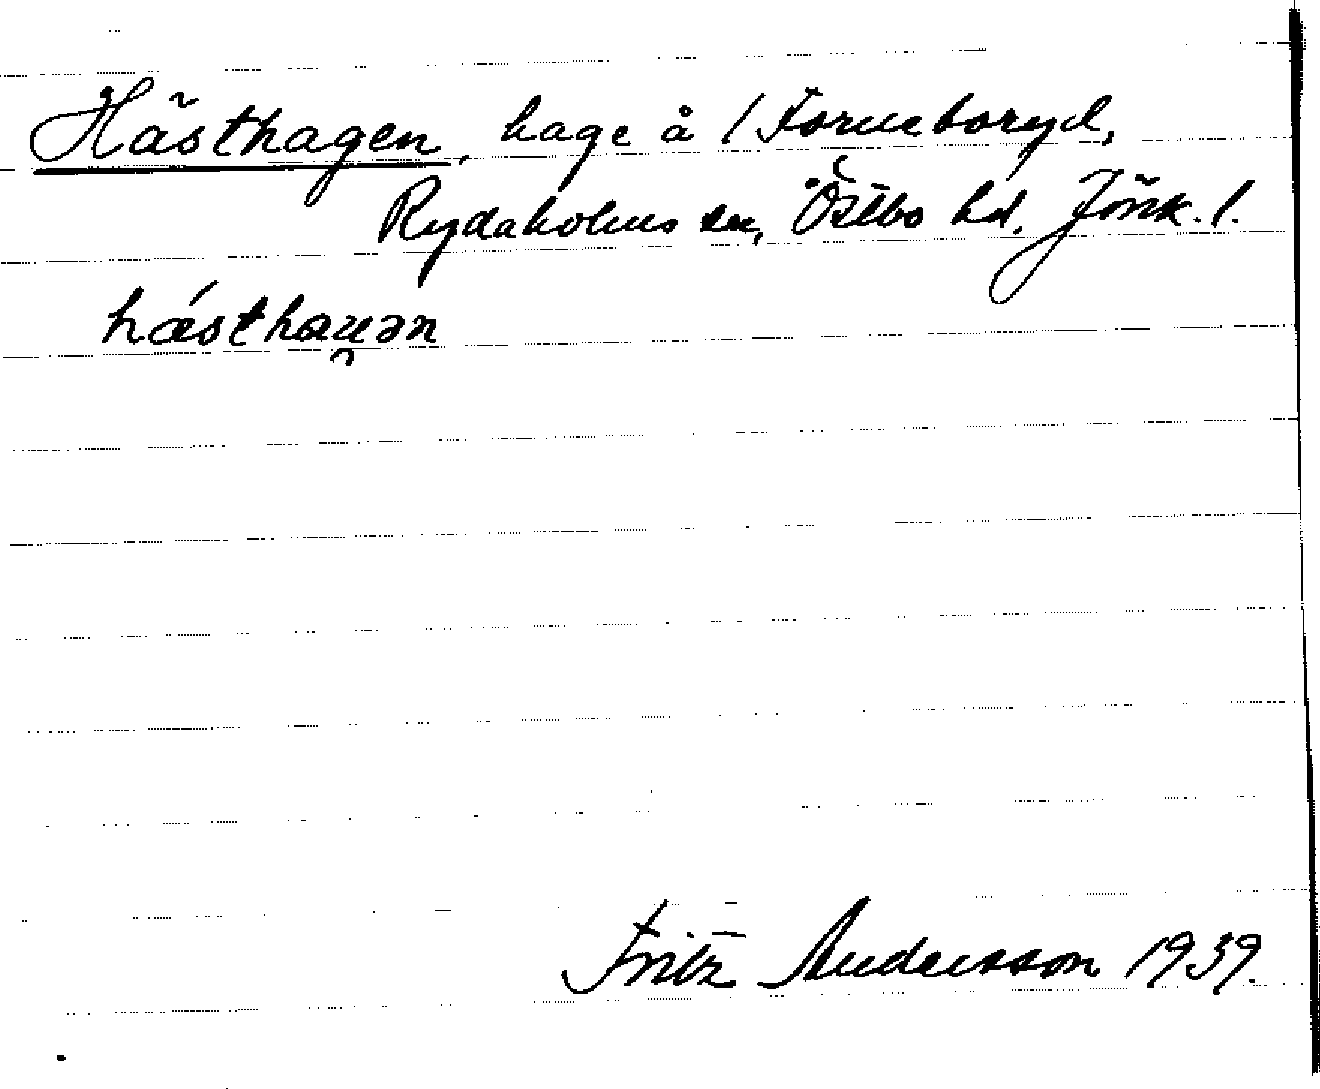 Hästhagen, hage å / Forneboryd,
Rydaholms sn, Östbo hd. Jönk. l.
hǽsthau̯ən
Fritz Andersson 1939.